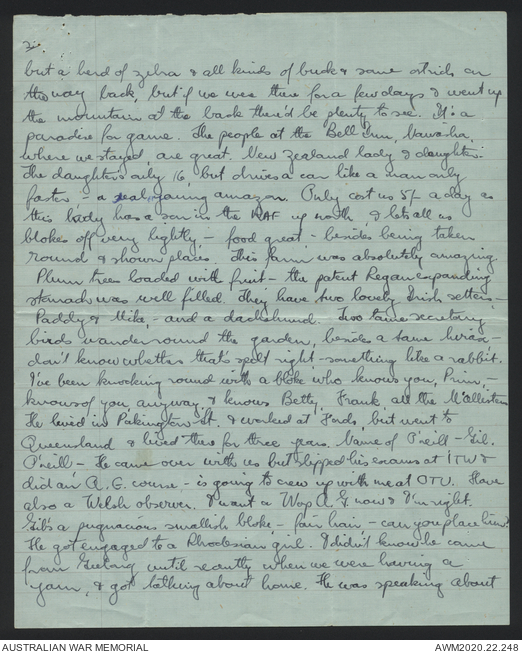 2.
but a herd of zebra & all kinds of buck & some ostrich on
the way back, but if we were there for a few days & went up
the mountain at the back there'd be plenty to see. It's a
paradise for game. The people at the Bell Inn,
where we stayed, are great. New Zealand lady & daughter.
The daughter's only 16, but drives a car like a man only
faster, - a real young amazon. Only cost us 5/- a day as
this lady has a son in the RAF up north, & lets all us
blokes off very lightly, - food great - besides being taken
round & shown places. This farm was absolutely amazing.
Plum trees loaded with fruit - the patent Regan expanding
stomach was well filled. They have two lovely Irish setters -
Paddy & Mike, - and a dachshund. Two tame secretary
birds wander round the garden, besides a tame hirax -
don't know whether that's spelt right - something like a rabbit.
I've been knocking round with a bloke who knows you, Prim, -
knows of you anyway, & knows Betty, Frank, all the McAllisters
He lived in Pakington St. & worked at Fords, but went to
Queensland & lived there for three years. Name of O'neill - Gil.
O'neill - He came over with us but slipped his exams at ITW &
did an A.G. course, - is going to crew up with me at OTU. Have
also a Welsh observer. I want a Wop A.G. now & I'm right.
Gil's a pugnacious smallish bloke, - fair hair, - can you place him?
He got engaged to a Rhodesian girl. I didn't know he came
from Geelong until recently when we were having a
yarn, & got talking about home. He was speaking about
AUSTRALIAN WAR MEMORIAL
AWM2020.22.248